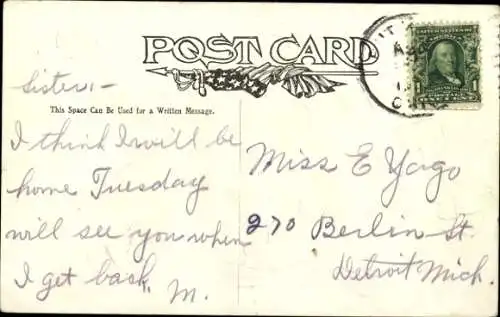 POST CARD
Sister,-
This Space Can Be Used for a Written Message.
I think I will be
home Tuesday
will see you when
I get back.
M.
Miss E Yago
270 Berlin St.
Detroit Mich.
UNITED STATES OF AMERICA
1